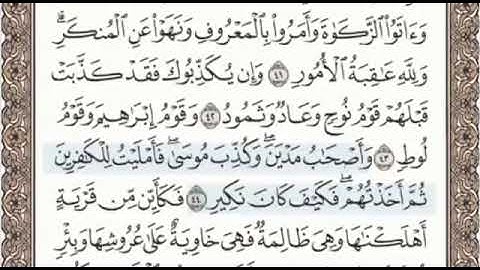 وَءَاتَوُا۟ ٱلزَّكَوٰةَ وَأَمَرُوا۟ بِٱلْمَعْرُوفِ وَنَهَوْا۟ عَنِ ٱلْمُنكَرِ ۗ
وَلِلَّهِ عَـٰقِبَةُ ٱلْأُمُورِ ٤١ وَإِن يُكَذِّبُوكَ فَقَدْ كَذَّبَتْ
قَبْلَهُمْ قَوْمُ نُوحٍ وَعَادٌ وَثَمُودُ ٤٢ وَقَوْمُ إِبْرَٰهِيمَ وَقَوْمُ
لُوطٍ ٤٣ وَأَصْحَـٰبُ مَدْيَنَ ۖ وَكُذِّبَ مُوسَىٰ فَأَمْلَيْتُ لِلْكَـٰفِرِينَ
ثُمَّ أَخَذْتُهُمْ ۖ فَكَيْفَ كَانَ نَكِيرِ ٤٤ فَكَأَيِّن مِّن قَرْيَةٍ
أَهْلَكْنَـٰهَا وَهِىَ ظَالِمَةٌ فَهِىَ خَاوِيَةٌ عَلَىٰ عُرُوشِهَا وَبِئْرٍ